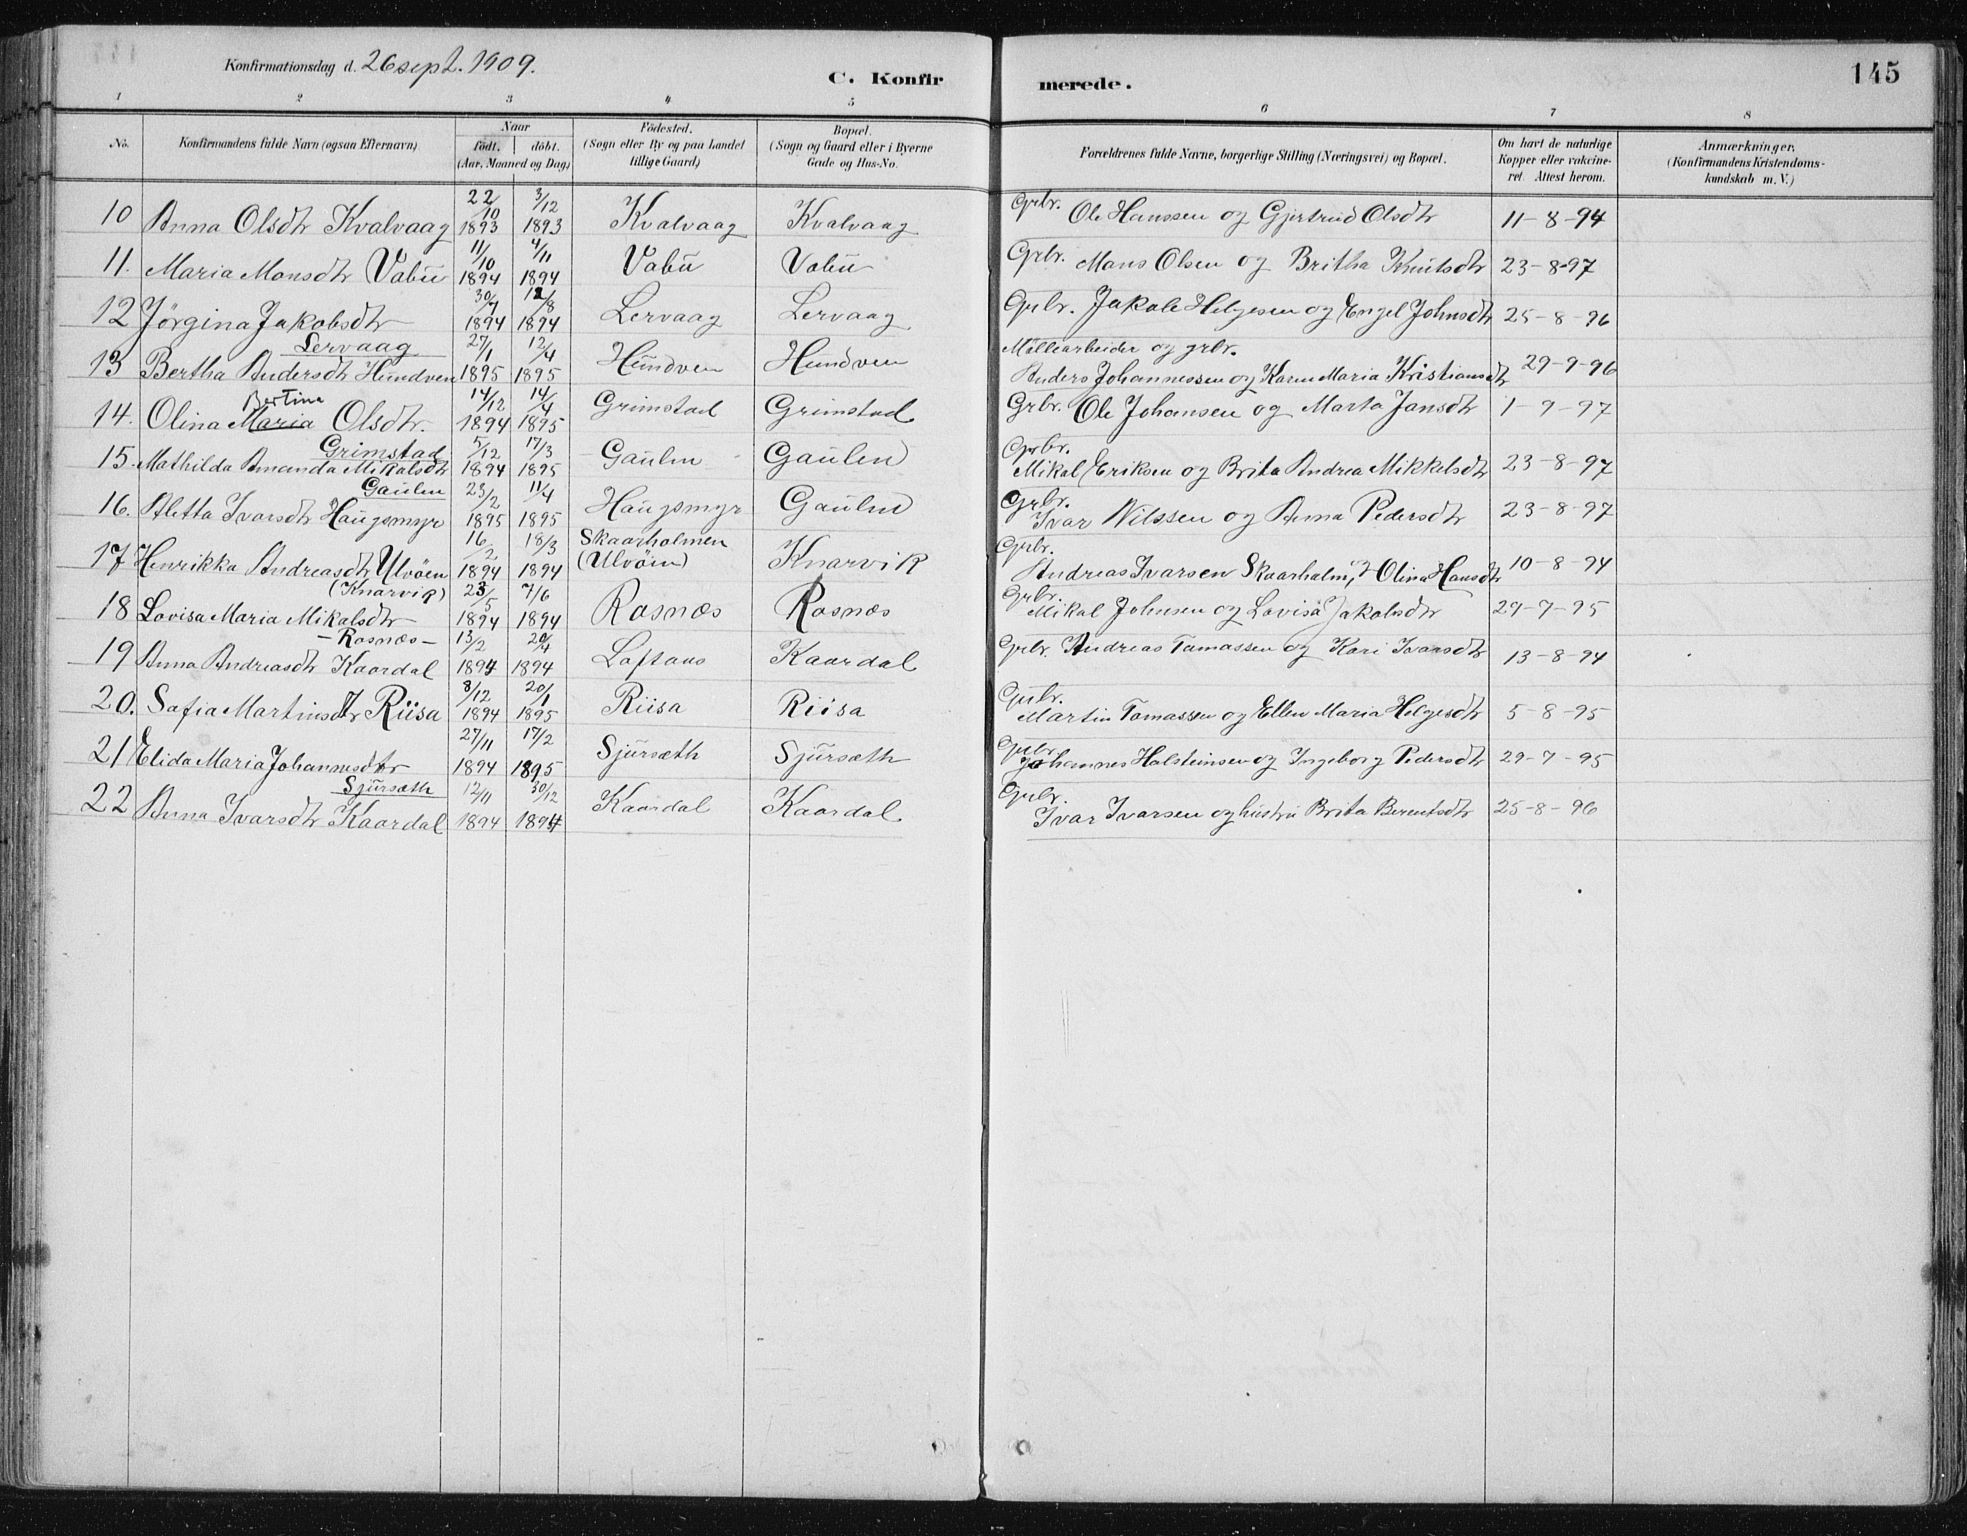 Konfirmationsdag d. 26 sept. 1909.
C. Konfirmerede.
145
1 2 3 4 5 6 7 8
No. | Konfirmandens fulde Navn (ogsaa Efternavn) | Naar födt. döbt. (Aar, Maaned og Dag) | Födested. (Sogn eller By og paa Landet tillige Gaard) | Bopæl. (Sogn og Gaard eller i Byerne Gade og Hus-No. | Forældrenes fulde Navne, borgerlige Stilling (Næringsvei) og Bopæl. | Om havt de naturlige Kopper eller vakcineret. Attest herom. | Anmærkninger. (Konfirmandens Kristendomskundskab m. V.)
10 Anna Olsdtr Kvalvaag 22/10 1893 3/12 1893 Kvalvaag Kvalvaag Grbr. Ole Hanssen og Gjertrud Olsdtr 11-8-94
11. Maria Monsdtr Vabü 11/10 1894 4/11 1894 Vabü Vabü Grbr. Mons Olsen og Britha Knütsdtr 23-8-97
12 Jörgina Jakobsdtr Lervaag 30/7 1894 12/8 1894 Lervaag Lervaag Grbr. Jakob Helgesen og Engel Johnsdtr 25-8-96
13 Bertha Andersdtr Hündven 27/1 1895 12/4 1895 Hündven Hundven Möllearbeider og grbr. Anders Johannessen og Karen Maria Kristiansdtr 29-9-96
14. Olina Maria Bertina Olsdtr. Grimstad 14/12 1894 14/4 1895 Grimstad Grimstad Grbr. Ole Johansen og Marta Jansdtr 1-9-97
15. Mathilda Amanda Mikalsdtr Gaulen 5/12 1894 17/3 1895 Gaülen Gaülen Grbr. Mikal Eriksen og Brita Andrea Mikkelsdtr 23-8-97
16. Aletta Ivarsdtr Haugsmyr 23/2 1895 11/4 1895 Haügsmyr Gaülen Grbr. Ivar Nilssen og Anna Pedersdtr 23-8-97
17 Henrikka Andreasdtr Ulvöen (Knarvik) 16/2 1894 18/3 1894 Skaarholmen (Ulvöen) Knarvik Grbr. Andreas Ivarsen Skaarholm, Olina Hansdtr 10-8-94
18 Lovisa Maria Mikalsdtr - Rosnæs - 23/5 1894 7/6 1894 Rosnæs Rosnæs Grbr. Mikal Johnsen og Lovisa Jakobsdtr 29-7-95
19 Anna Andreasdtr Kaardal 13/2 1894 20/4 1894 Loftaas Kaardal Grbr. Andreas Tomassen og Kari Ivarsdtr 13-8-94
20. Sofia Martinsdtr Riisa 8/12 1894 20/1 1895 Riisa Riisa Grbr. Martin Tomassen og Ellen Maria Helgesdtr 5-8-95
21 Elida Maria Johannesdtr Sjürsæth 27/11 1894 17/2 1895 Sjürsæth Sjürsæth Grbr. Johannes Halsteinsen og Ingeborg Pedersdtr 29-7-95
22 Anna Ivarsdtr Kaardal 12/11 1894 30/12 1894 Kaardal Kaardal Grbr. Ivar Ivarsen og hüstrü Brita Berentsdtr 25-8-96